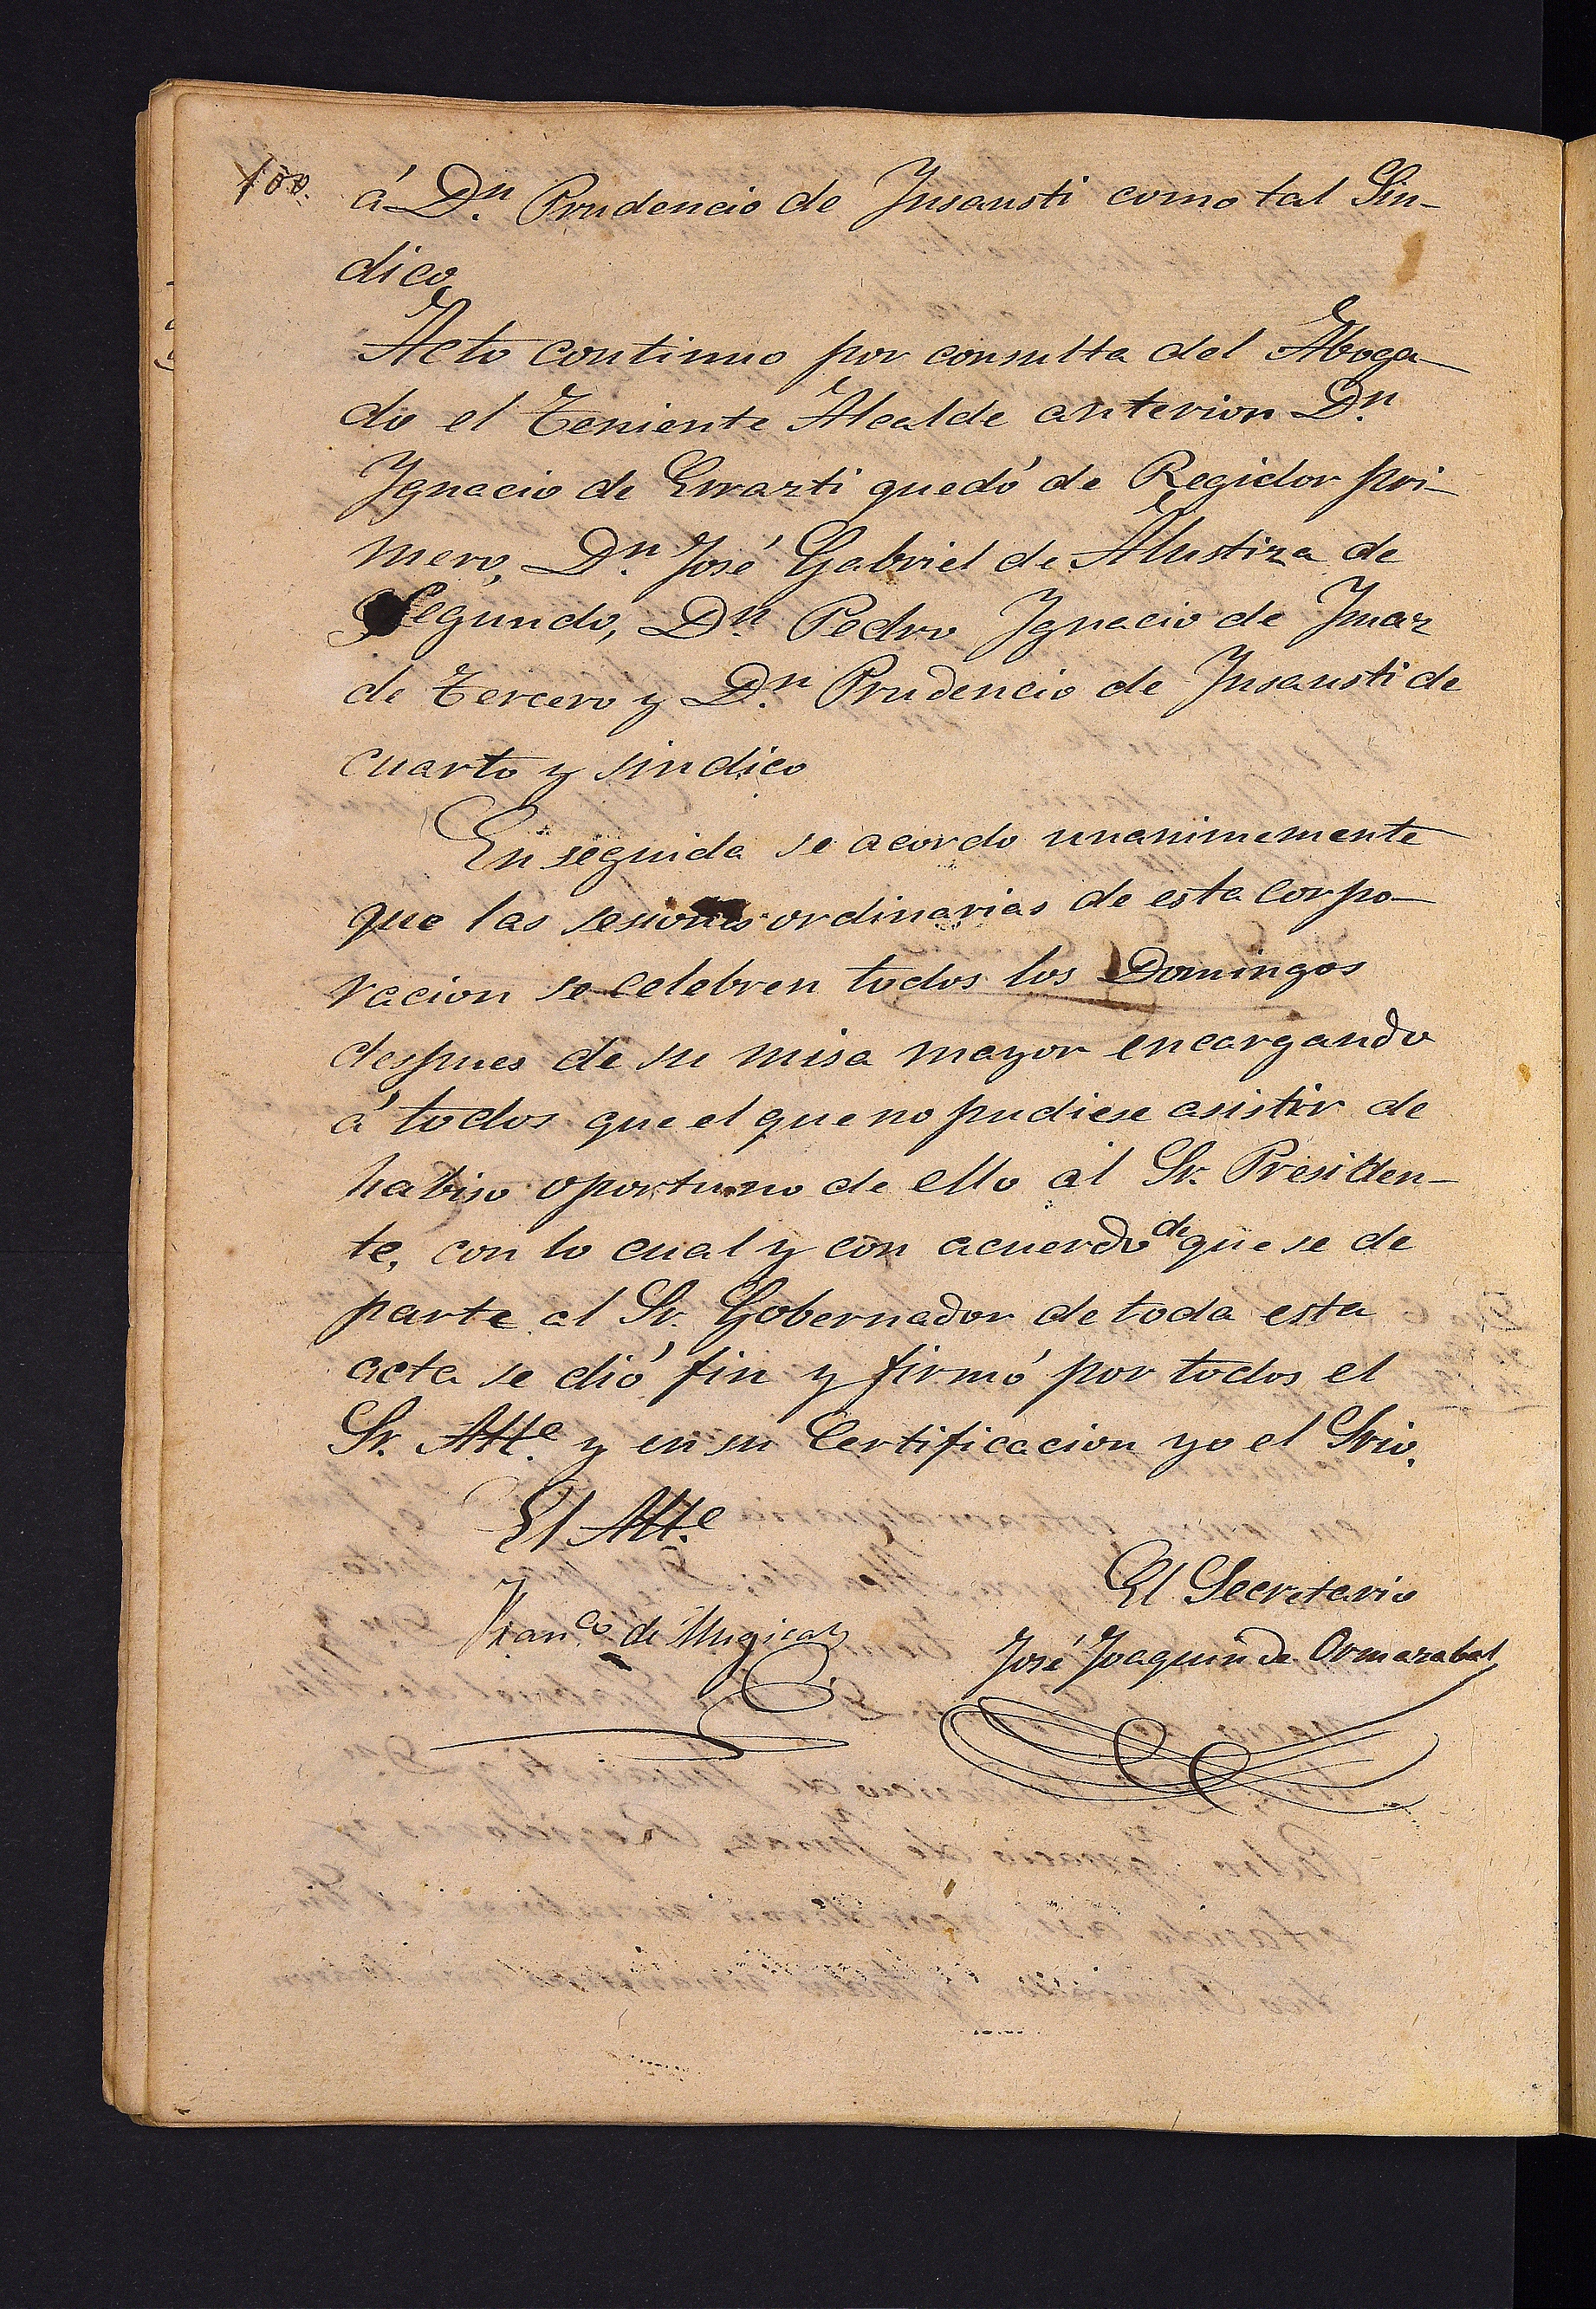 100.
á Dn. Prudencio de Insausti como tal Sin-
dico,
Acto continuo por consulta del Aboga-
do el Teniente Alcalde anterior Dn.
Ygnacio de Errazti quedó de Regidor pri-
mero, Dn. José Gabriel de Alustiza de
Segundo, Dn. Pedro Ygnacio de Ymaz
de Tercero y Dn. Prudencio de Insausti de
cuarto y sindico
En seguida se acordo unanimemente
que las sesiones ordinarias de esta Corpo-
racion se celebren todos los Domingos
despues de su misa mayor encargando
á todos que el que no pudiese asistir de
habiso oportuno de ello al Sr. Presiden-
te, con lo cual y con acuerdo de que se de
parte al Sr. Gobernador de toda esta
acta se dió fin y firmó por todos el
Sr. Alle. y en su Certificacion yo el Srio.
El Alle.
El Secretario
Franco. de Mugica
José Joaquin de Ormazabal